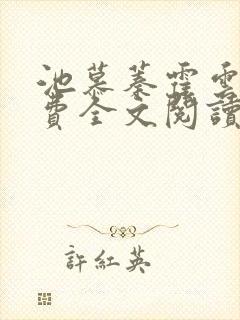 池慕蓁霆雲
費全文閱讀
許紅英